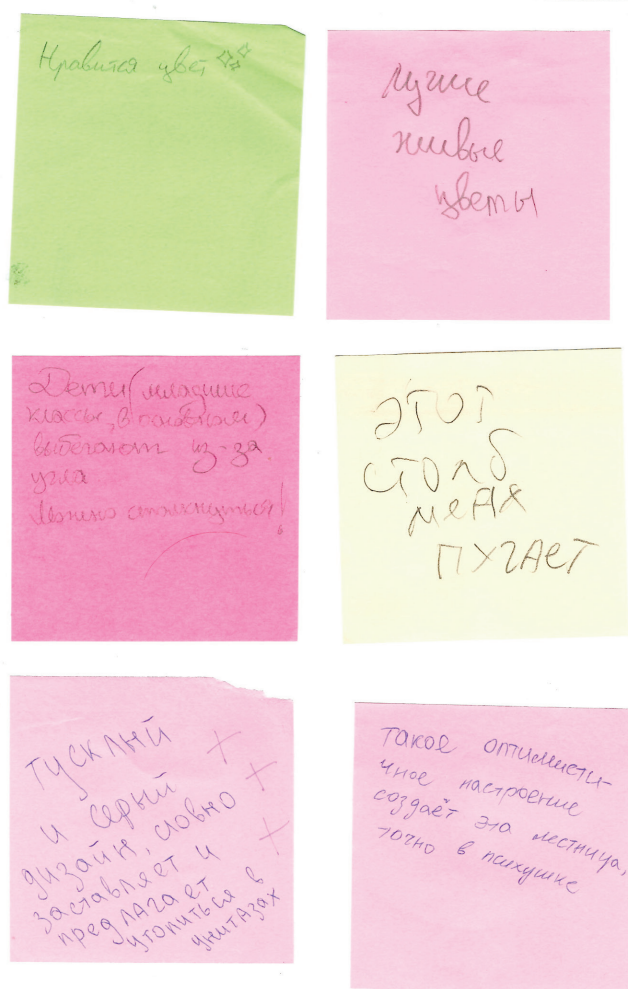 Нравится цвет
лучше
живые
цветы
Дети (младшие
классы, в основном)
выбегают из-за
угла
Можно столкнуться!
ЭТОТ
СТОЛБ
МеНЯ
ПУГАЕТ
Тусклый
и серый
дизайн, словно
заставляет и
предлагает
утопиться в
унитазах
такое оптимисти-
чное настроение
создаёт эта лестница,
точно в психушке